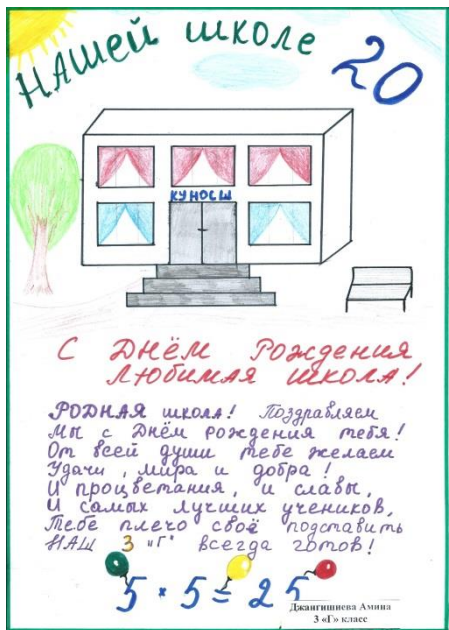 НАШЕЙ ШКОЛЕ 20
КУНОСШ
С ДНЁМ РОЖДЕНИЯ
ЛЮБИМАЯ ШКОЛА!
РОДНАЯ школа! Поздравляем
Мы с Днём рождения тебя!
От всей души тебе желаем
Удачи, мира и добра!
И процветания, и славы,
И самых лучших учеников,
Тебе плечо своё подставить
НАШ 3 «Г" всегда готов!
5 × 5 = 25
Джангишиева Амина
3 «Г» класс